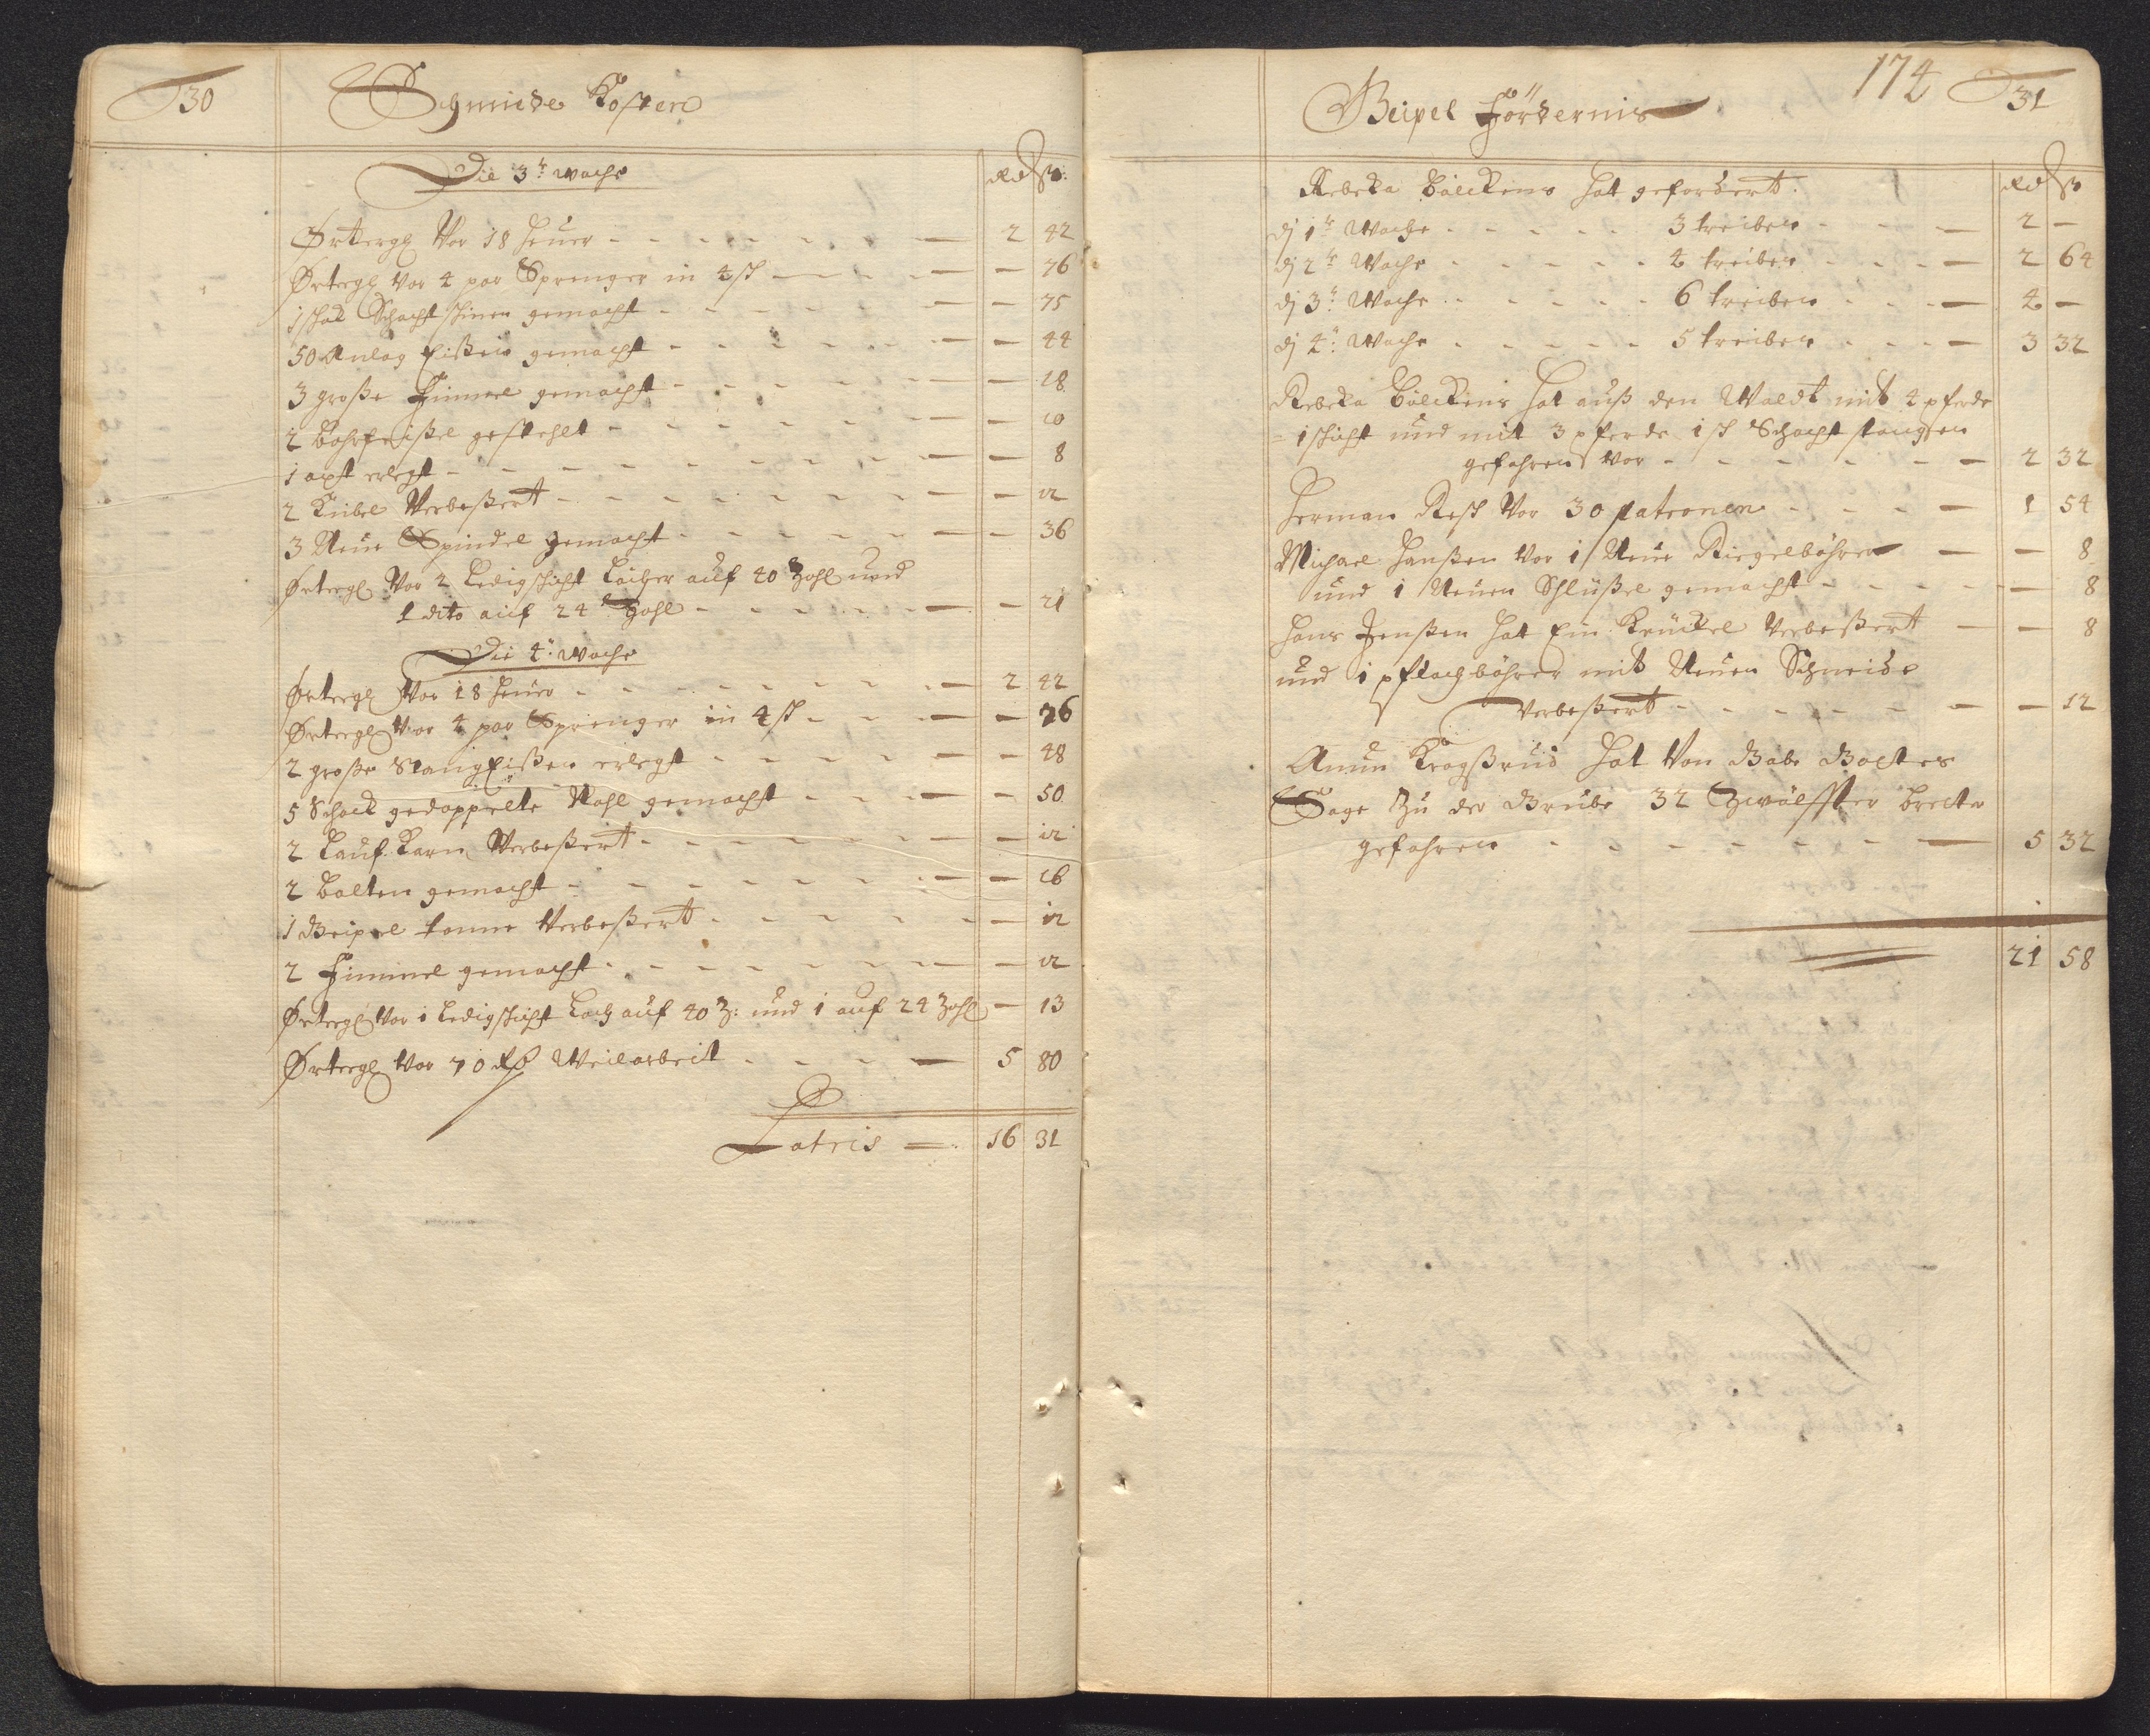 30
Schmiede Kosten
Die 3te Woche
Rd ß
Ørtergl Vor 18 heuer - - - 2 42
Ørtergl Vor 4 par Sprenger in 4 sch - - - 76
1 schock Schacht schinen gemacht - - - 75
50 Anlag Eißen gemacht - - - 44
3 große Fimmel gemacht - - - 18
2 bohrfeißel gestehlt - - - 10
1 axt erlegt - - - 8
2 Kübel Verbeßert - - - 12
3 Neue Spindel gemacht - - - 36
Ørtergl Vor 2 Ledigschicht Löcher auf 40 Zohl und
1 dito auf 24 Zohl - - - 21
Die 4te Woche
Ørtergl Vor 18 heuer - - - 2 42
Ørtergl Vor 4 par Sprenger in 4 sch - - - 76
2 große Stang Eißen erlegt - - - 48
5 Schock gedoppelte Nahl gemacht - - - 50
2 Lauf Karn Verbeßert - - - 12
2 bolten gemacht - - - 16
1 Geipel tonne Verbeßert - - - 12
2 Fimmel gemacht - - - 12
Ørtergl Vor 1 Ledigschicht Loch auf 40 Z: und 1 auf 24 Zohl - 13
Ørtergl Vor 70 Weilarbeit - - - 5 80
Latris = 16 31
174
31
Geipel Fördernis
Rd ß
Rebeka hat gefordert.
dj 1te Woche - - - 3 treiben - - - 2 -
dj 2te Woche - - - 4 treiben - - - 2 64
dj 3te Woche - - - 6 treiben - - - 4 -
dj 4te Woche - - - 5 treiben - - - 3 32
Rebeka hat auß den Waldt mit 4 pferde
1 schicht und mit 3 pferde 1 sch Schacht stangen
gefahren Vor - - - 2 32
Herman Resch Vor 30 patronen - - - 1 54
Michael Hanßen Vor 1 Neue Riegelböhrer - - 8
und 1 Neuen Schlüßel gemacht - - - 8
Hans Jenßen hat Ein Krückel Verbeßert - - 8
und 1 pflochböhrer mit Neuen Schneide
Verbeßert - - - 12
Amun Kragßrud hat Von Gabe
Sage Zu der Grube 32 Zwölffter bretter
gefahren - - - 5 32
21 58